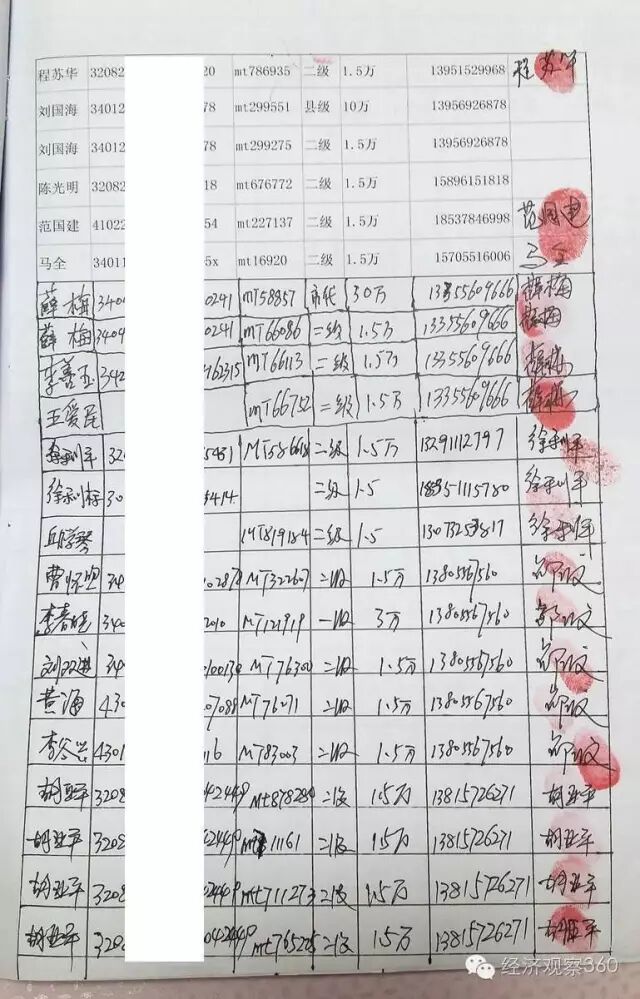 程苏华 32082 20 mt786935 二级 1.5万 13951529968 程苏华
刘国海 34012 78 mt299551 县级 10万 13956926878
刘国海 34012 78 mt299275 二级 1.5万 13956926878
陈光明 32082 18 mt676772 二级 1.5万 15896151818
范国建 41022 54 mt227137 二级 1.5万 18537846998 范国建
马全 34011 5x mt16920 二级 1.5万 15705516006 马全
薛梅 3404 0241 MT58857 市代 30万 13355609666 薛梅
薛梅 3404 0241 MT66086 二级 1.5万 13355609666 薛梅
李善玉 342 162315 MT66113 二级 1.5万 13355609666 薛梅
王爱民 MT66752 二级 1.5万 13355609666 薛梅
徐利军 320 5431 二级 1.5万 13291112797 徐利军
3414 二级 1.5 徐利军
邱学琴 MT819184 二级 1.5 徐利军
曹怀 34 MT32260 二级 1.5万 13805567560
李春旺 340 2010 MT121919 一级 3万 13805567560
34 MT76300 二级 1.5万 13805567560
黄海 430 07088 MT76071 二级 1.5万 13805567560
李谷兰 4301 16 MT83003 二级 1.5万 13805567560
胡亚平 3208 mt878280 二级 1.5万 13815726271 胡亚平
胡亚平 3208 1161 二级 1.5万 13815726271 胡亚平
胡亚平 3208 mt711273 二级 1.5万 13815726271 胡亚平
胡亚平 3208 二级 1.5万 13815726271 胡亚平
经济观察360